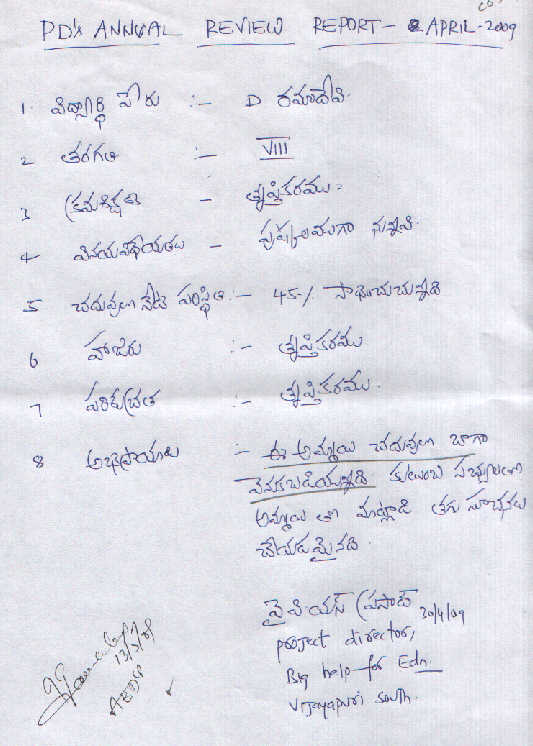 PD's ANNUAL REVIEW REPORT - APRIL-2009
1. విద్యార్థి పేరు :- D రమాదేవి.
2 తరగతి :- VIII
3 క్రమశిక్షణ - తృప్తికరము.
4 వినయవిధేయతలు - పుష్కలముగా నున్నవి.
5 చదువులో నేటి పరిస్థితి :- 45% సాధించుచున్నది
6 హాజరు :- తృప్తికరము
7 పరిశుభ్రత :- తృప్తికరము.
8 అభిప్రాయాలు :- ఈ అమ్మాయి చదువులో బాగా
వెనకబడియున్నది కుటుంబ సభ్యులతో
అమ్మాయి తో మాట్లాడి తగు సూచనలు
చేయడమైనది.
వై.పి.యస్ ప్రసాద్ 30/4/09
project director,
Big help for Edn.
Vijayapuri South.
13/5/09